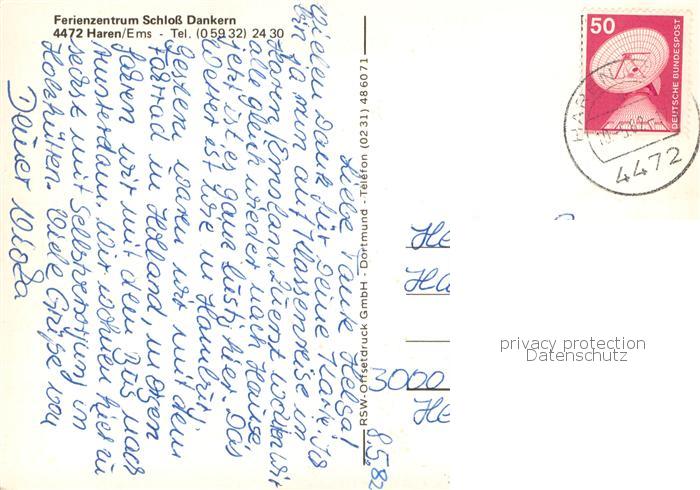 Ferienzentrum Schloß Dankern
4472 Haren/Ems - Tel. (0 59 32) 24 30
Liebe Tante Helga!
Vielen Dank für Deine Karte. Ich
bin ja nun auf Klassenreise in
Haren/Emsland. Zuerst wollten wir
alle gleich wieder nach Hause,
jetzt ist es ganz lustig hier. Das
Wetter ist wie in Hamburg.
Gestern waren wir mit dem
Fahrrad in Holland, morgen
fahren wir mit dem Bus nach
Amsterdam. Wir wohnen hier zu
sechst mit Selbstversorgung in
Holzhütten. Viele Grüße von
Deiner
RSW-Offsetdruck GmbH - Dortmund - Telefon (02 31) 48 60 71
8.5.82
50
DEUTSCHE BUNDESPOST
4472
He
Ha
3000
He
privacy protection
Datenschutz